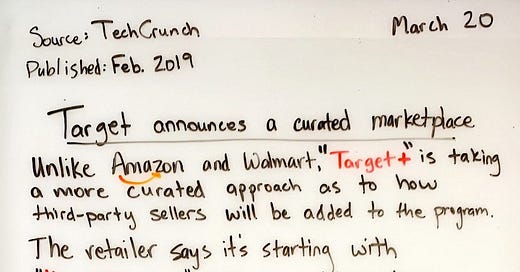 Source: TechCrunch
March 20
Published: Feb. 2019
Target announces a curated marketplace
Unlike Amazon and Walmart, "Target+" is taking
a more curated approach as to how
third-party sellers will be added to the program.
The retailer says it's starting with